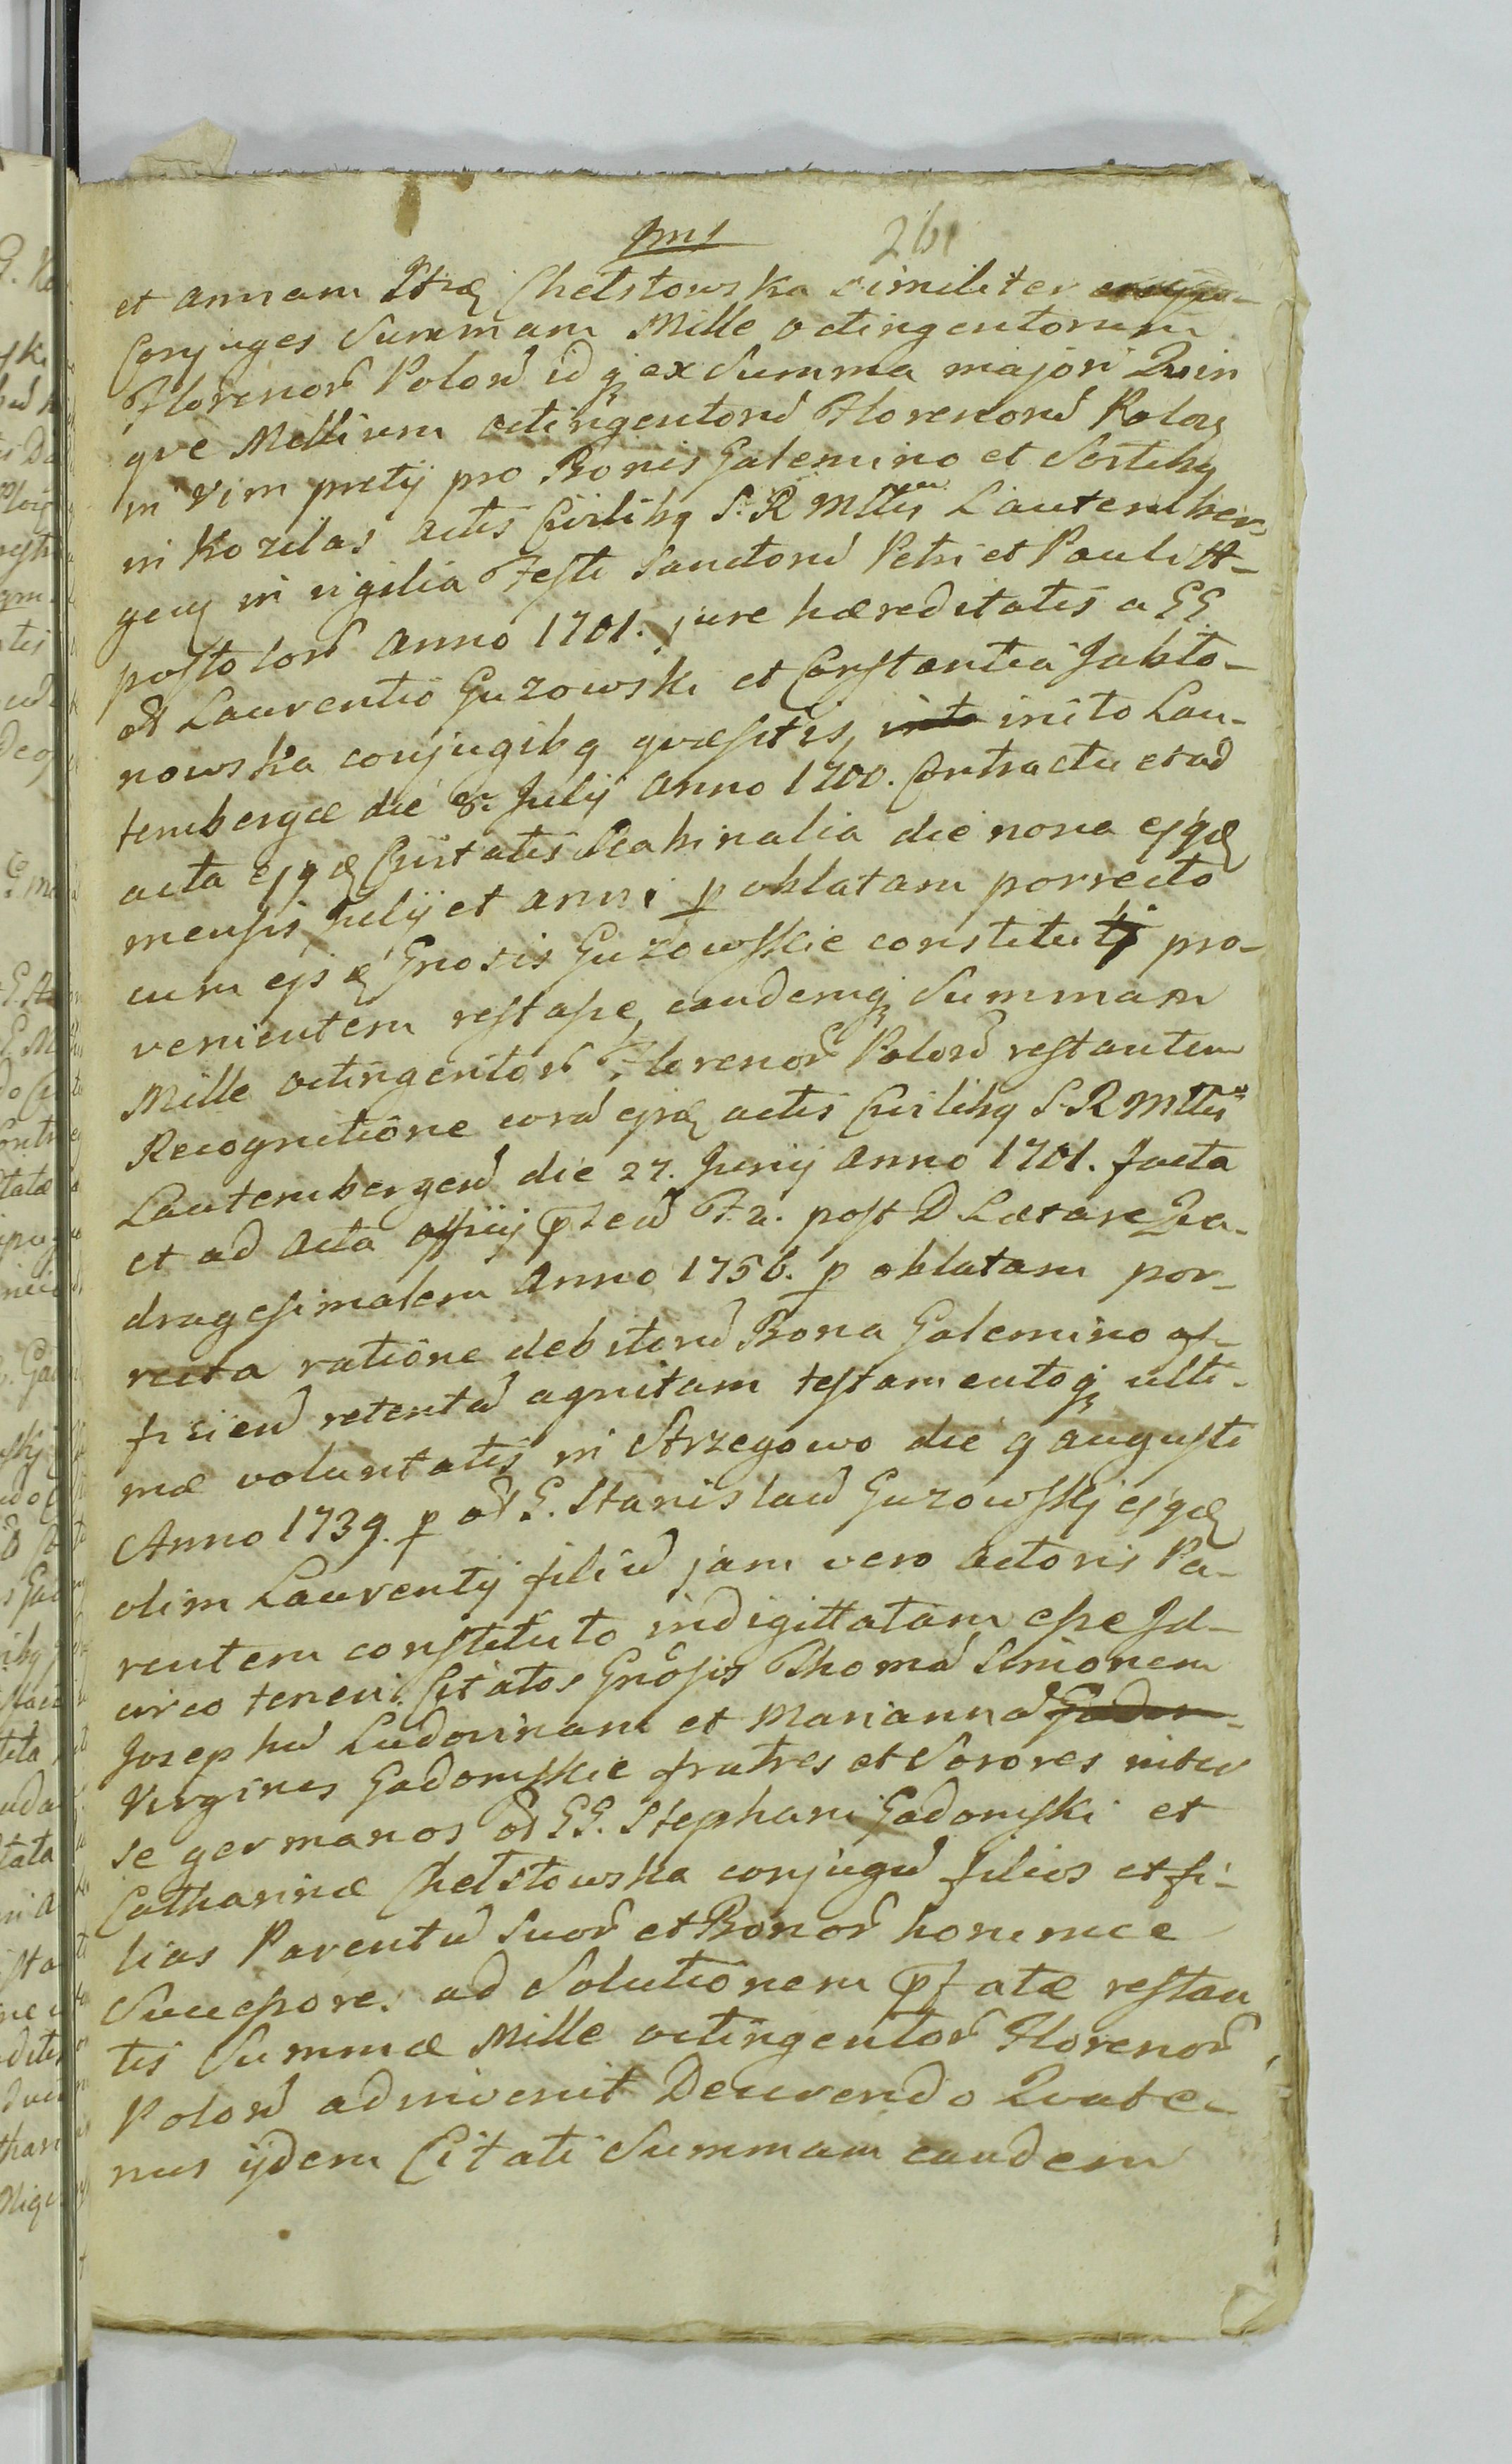 261
et annam Chełstowska similiter
Conjuges Summam Mille octingentorum
Florenor Polord id q ex Summa majori Quin
que Millium octingentord Florenord Polog
in vim pretij pro Bonis Galemino et Sortibq
in Kozilas actis Civilibq S. R. Mttis Lautember
gen in vigilia Festi Sanctord Petri et Pauli A-
postolord anno 1701. jure hæreditatis a GG
od Laurentio Guzowski et Constantia Jabło-
nowska conjugibq quæsitis, inito Lau-
tembergæ die 8. Julij anno 1700. Contractu et ad
acta ejqd Civitatis Scabinalia die nona ejqd
mensis Julij et anni p oblatam porrecto
cum Gnosis Guzowskie constituti pro-
venientem restasse, eandemq Summam
Mille octingentord Florenor Polord restantem
Recognitione cord actis Civilibq S. R. Mttis
Lautembergend die 27. Junij anno 1701. facta
et ad acta officij F. 2. post D. Lætare Qua-
dragesimalem anno 1756. p oblatam por-
recta ratione debitord Bona Galemino af-
ficiend retentd agnitam testamentoq ulti-
mæ voluntatis in Strzegowo die 9 augusti
Anno 1739. p od G. Stanislaud Guzowskj ejqd
olim Laurentij filiud jam vero actoris Pa-
rentem constituto indigittatam esse Id-
circo teneri Citatos Gnosis Thomad Simonem
Josephud Ludovinam et Mariannad
Virgines Gadomskie fratres et Sorores inter
se germanos od GG. Stephani Gadomski et
Catharinæ Chełstowska conjugud filios et fi-
lias Parentud Suor et Bonor horumce
Successores ad Solutionem pfatæ restan
tis Summæ Mille octingentor Florenor
Polord adinvenit Decernendo Quate-
nus ijdem Citati Summam eandem